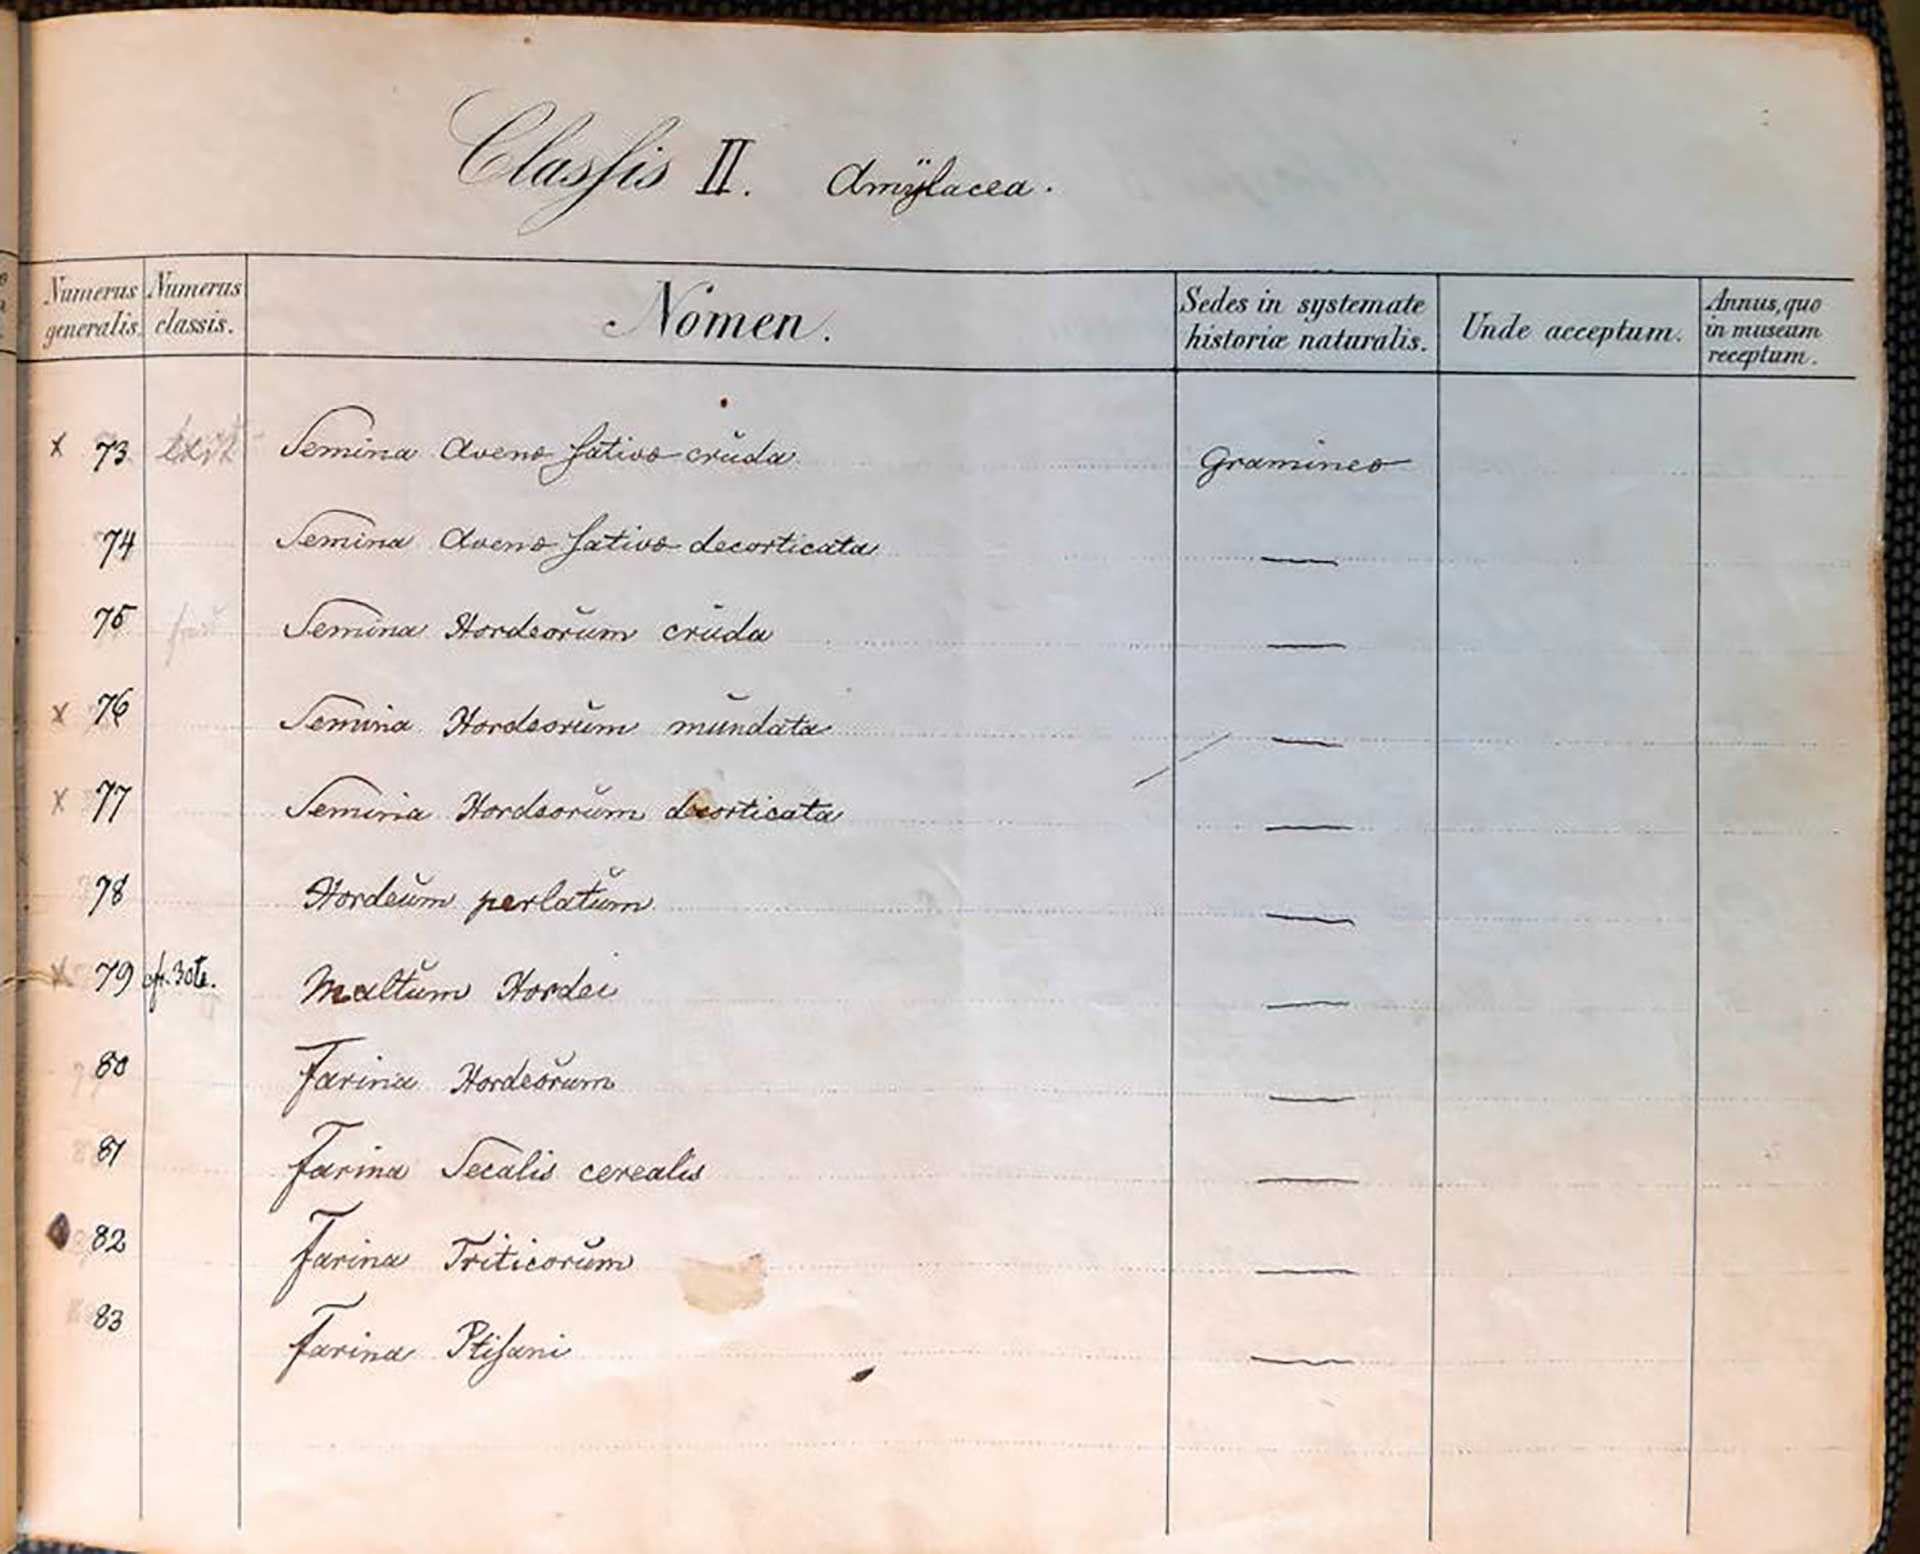 Classis II. Amÿlacea.
Numerus generalis. Numerus classis. Nomen. Sedes in systemate historiæ naturalis. Unde acceptum. Annus, quo in museum receptum.
x 73 Semina Avenæ sativæ crŭda Gramineæ
74 Semina Avenæ sativæ decorticata —
75 Semina Hordeorŭm crŭda —
x 76 Semina Hordeorŭm mŭndata —
x 77 Semina Hordeorŭm decorticata —
78 Hordeŭm perlatŭm —
x 79 Maltŭm Hordei —
80 Farina Hordeorŭm —
81 Farina Secalis cerealis —
82 Farina Triticorŭm —
83 Farina Ptisani —